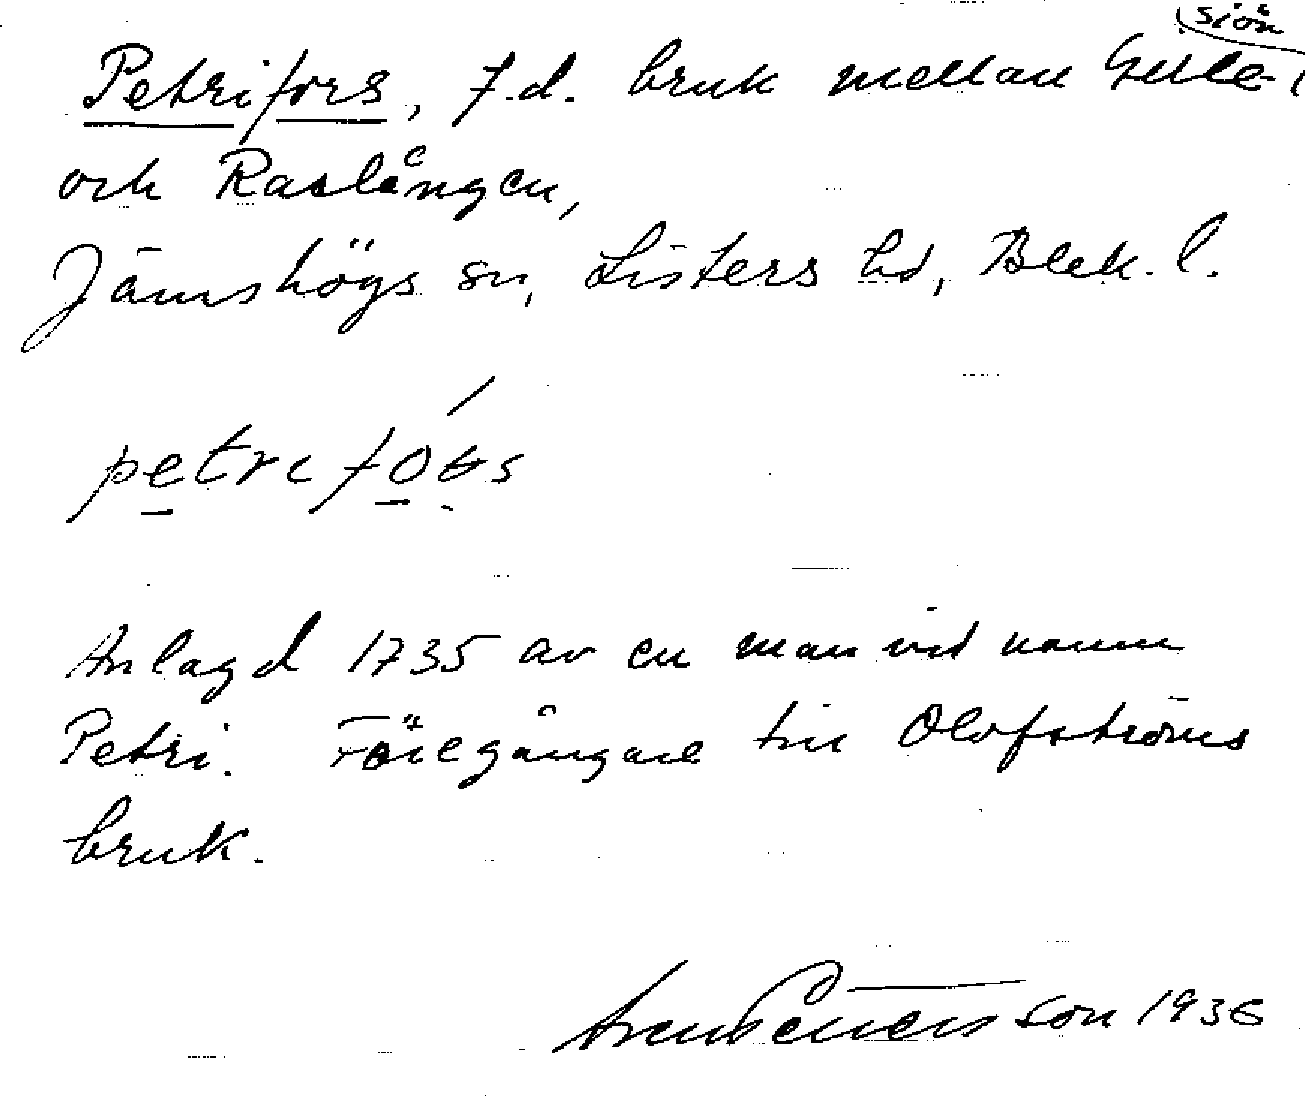 sjön
Petrifors, f.d. bruk mellan Gille-
och Raslången,
Jämshögs sn, Listers hd, Blek. l.
petrifors
Anlagd 1735 av en man vid namn
Petri. Föregångare till Olofströms
bruk.
Pettersson 1936